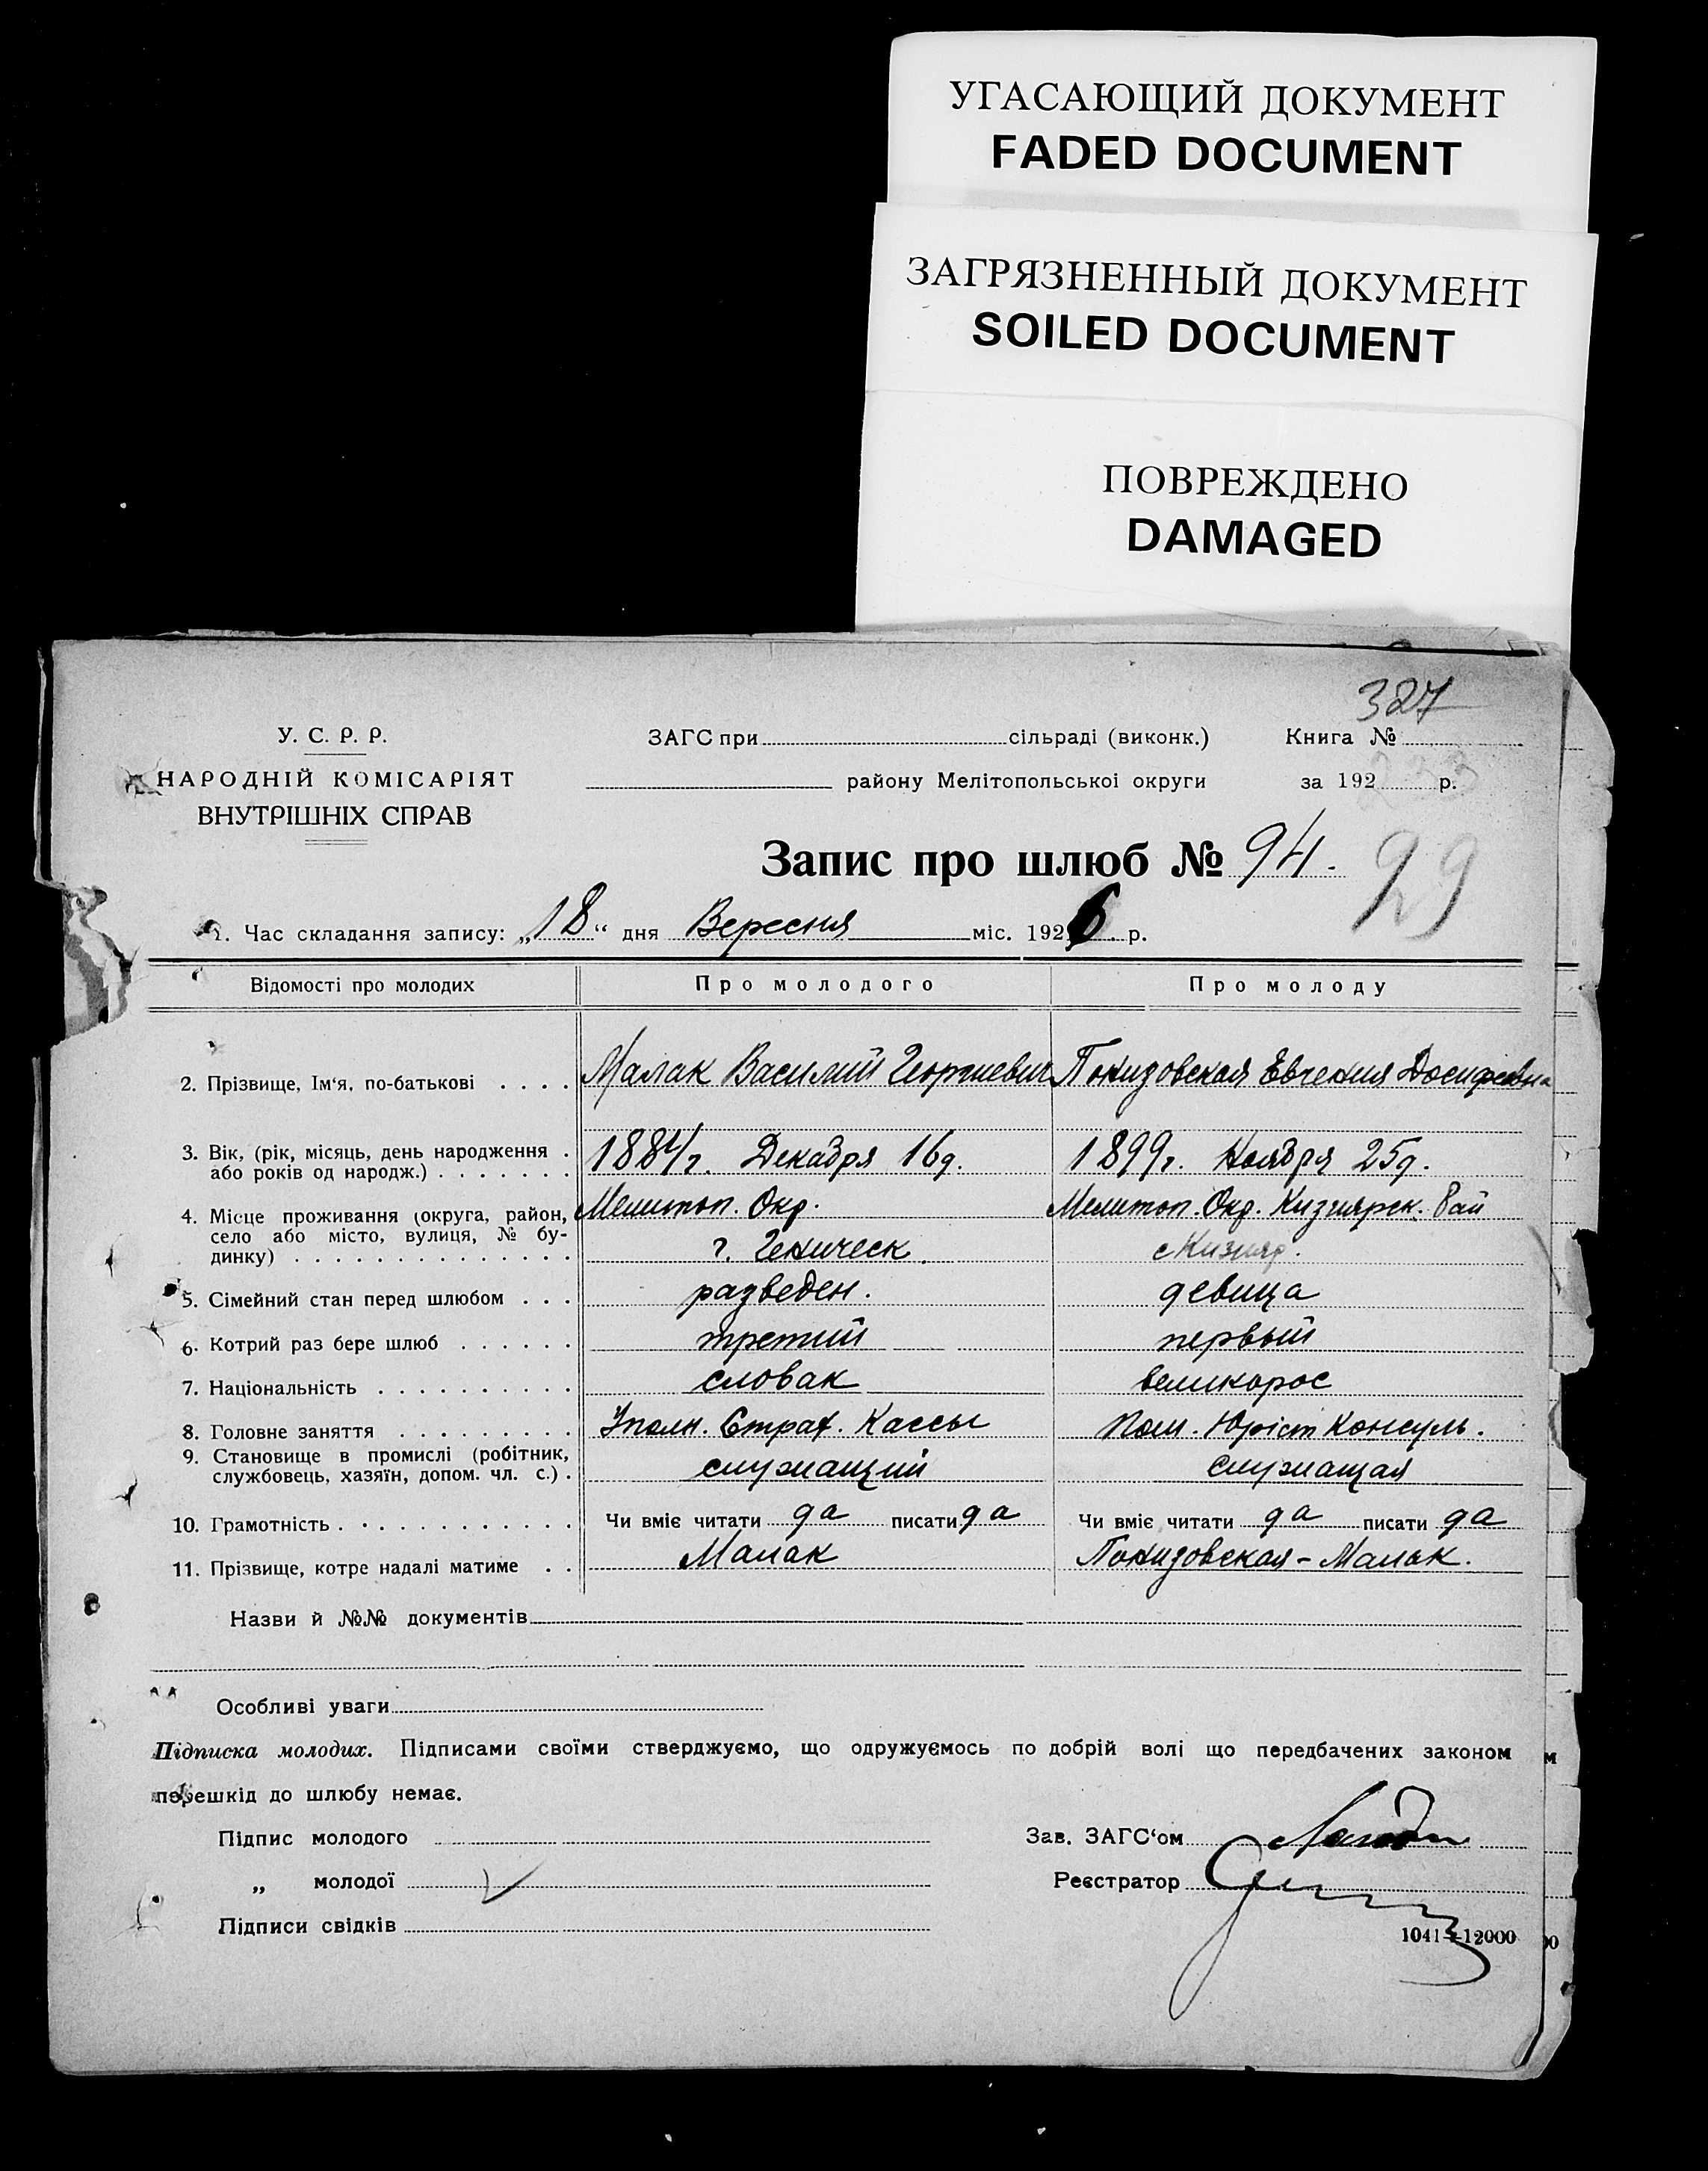 УГАСАЮЩИЙ ДОКУМЕНТ
FADED DOCUMENT
ЗАГРЯЗНЕННЫЙ ДОКУМЕНТ
SOILED DOCUMENT
ПОВРЕЖДЕНО
DAMAGED
327
У. С. Р. Р.
ЗАГС при сільраді (виконк.) Книга №
НАРОДНІЙ КОМІСАРІЯТ
району Мелітопольської округи за 192 р.
ВНУТРІШНІХ СПРАВ
Запис про шлюб № 94.
29
1. Час складання запису: „18“ дня Вересня міс. 1926 р.
Відомості про молодих Про молодого Про молоду
2. Прізвище, Ім'я, по-батькові . . . . Малак Василий Георгиевич Понизовская Евгения Досифеевна
3. Вік, (рік, місяць, день народження .
або років од народж.) . . . . . . . 1884 г. Декабря 16 д. 1899 г. Ноября 25 д.
4. Місце проживання (округа, район, Мелитоп. Окр. Мелитоп. Окр. Кизиярск. Рай
село або місто, вулиця, № бу-
динку) . . . . . . . . . . . . . . г. Геническ. с Кизияр.
5. Сімейний стан перед шлюбом . . . разведен. девица
6. Котрий раз бере шлюб . . . . . . третий первый
7. Національність . . . . . . . . . . словак великорос
8. Головне заняття . . . . . . . . . Уполн. Страх. Кассы Пом. Юріст Консуль.
9. Становище в промислі (робітник,
службовець, хазяїн, допом. чл. с.) . служащий служащая
10. Грамотність . . . . . . . . . . . . Чи вміє читати да писати да Чи вміє читати да писати да
11. Прізвище, котре надалі матиме . . Малак Понизовская-Малак.
Назви й №№ документів
Особливі уваги
Підписка молодих. Підписами своїми стверджуємо, що одружуємось по добрій волі що передбачених законом
перешкід до шлюбу немає.
Підпис молодого Зав. ЗАГС'ом
„ молодої Реєстратор
Підписи свідків
1041—12000